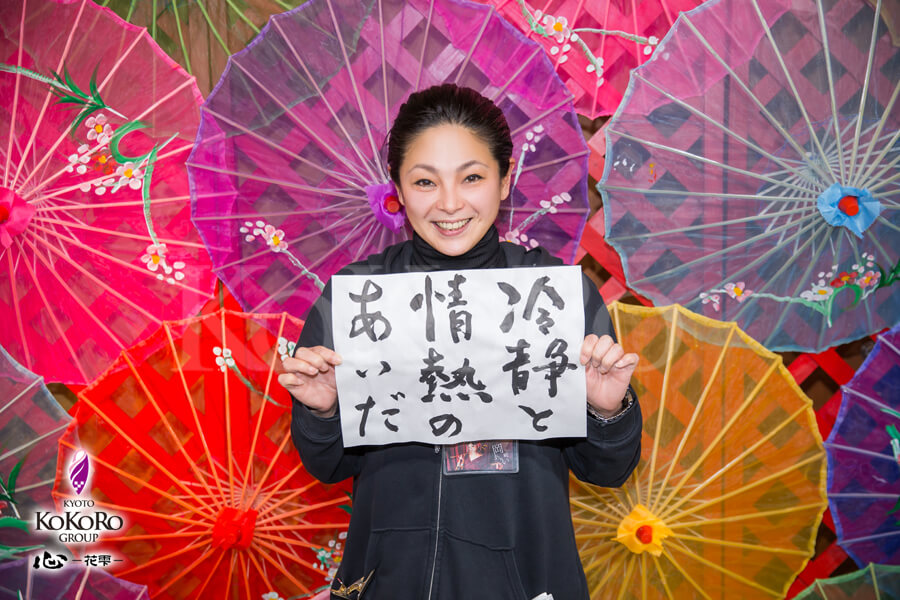 冷静と
情熱の
あいだ
KYOTO
KoKoRo
GROUP
心 ー花雫ー